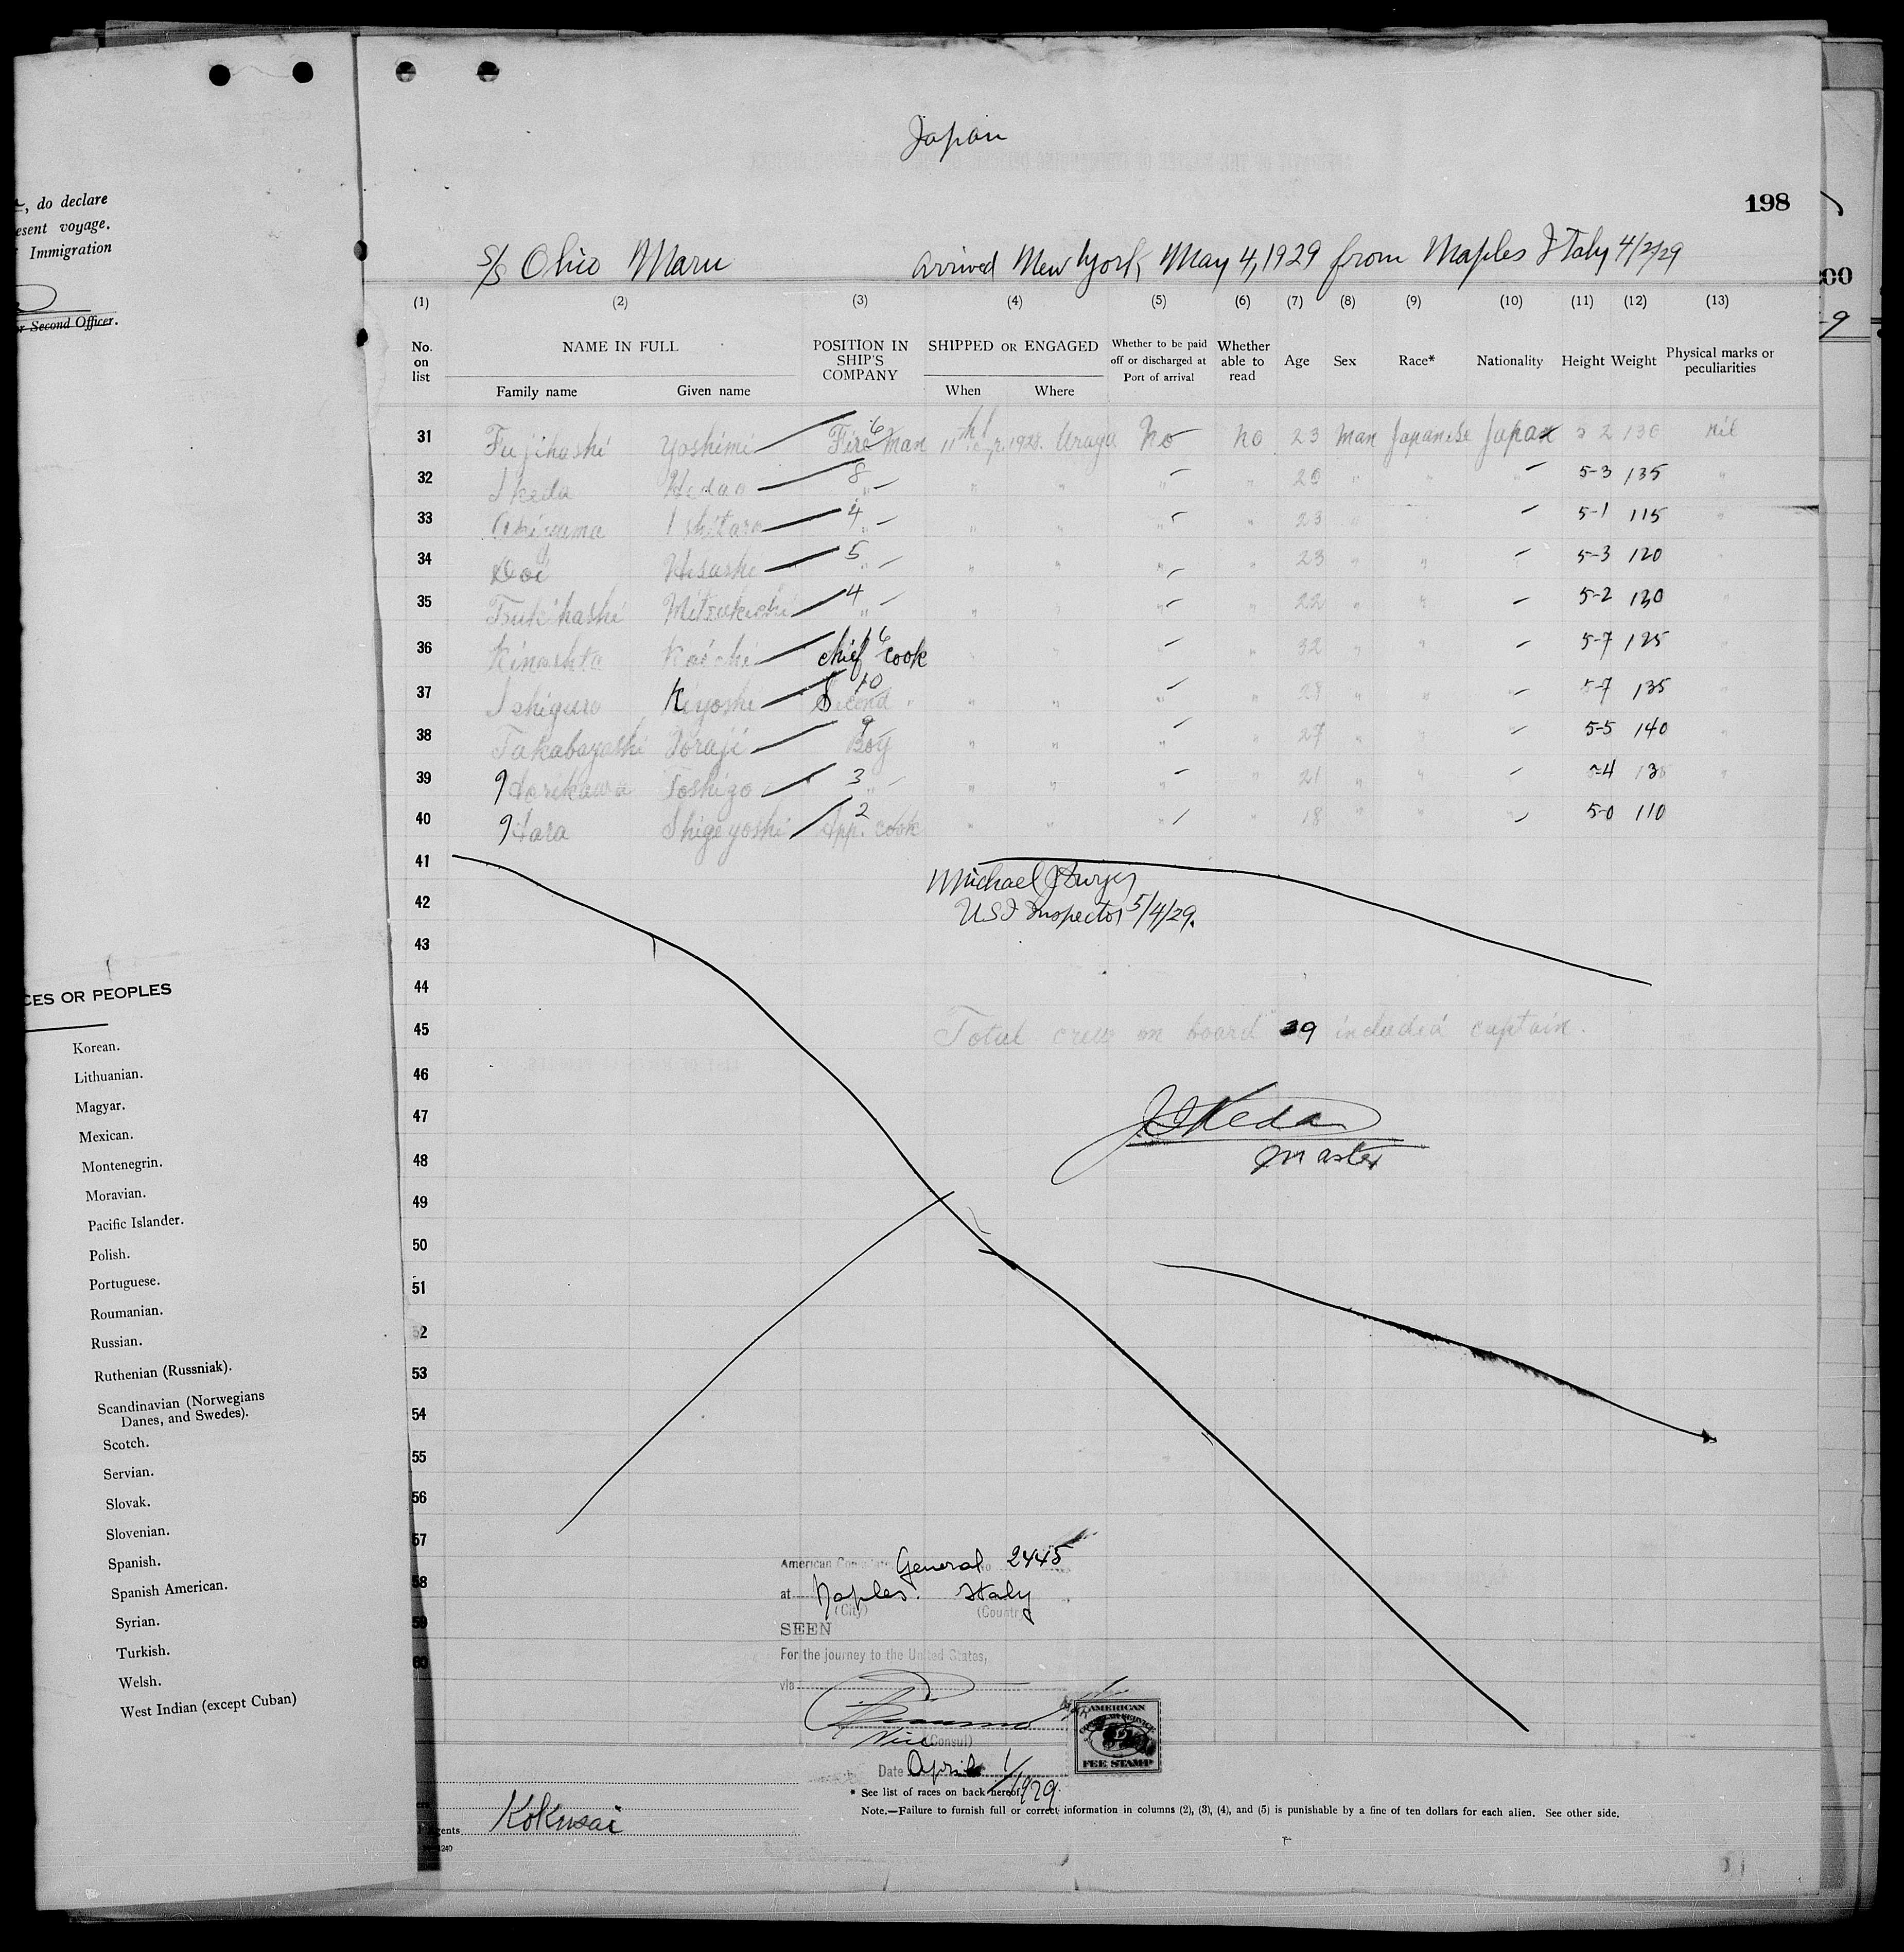 Japan
198
, do declare
esent voyage.
Immigration
or Second Officer.
S/S Ohio Maru arrived New York, May 4, 1929 from Naples Italy 4/2/29
00
-9
(1) (2) (3) (4) (5) (6) (7) (8) (9) (10) (11) (12) (13)
No. on list NAME IN FULL Family name Given name POSITION IN SHIP'S COMPANY SHIPPED OR ENGAGED When Where Whether to be paid off or discharged at Port of arrival Whether able to read Age Sex Race* Nationality Height Weight Physical marks or peculiarities
31 Fujihashi Yoshimi 6 Fire Man 11th 1928. Uraga No No 23 Man Japanese Japan 5 2 130 nil
32 Ikeda Hidao 8 " " " " " 20 " " " 5-3 135 "
33 Akiyama Ishitaro 4 " " " " " 23 " " " 5-1 115 "
34 Doi Hisashi 5 " " " " " 23 " " " 5-3 120 "
35 Tsukihashi Mitsukichi 4 " " " " " 22 " " " 5-2 130 "
36 Kinoshta Koichi 6 chief cook " " " " 32 " " " 5-7 125 "
37 Ishiguro Kiyoshi 10 Second " " " " " 28 " " " 5-7 135 "
38 Takabayashi Toraji 9 Boy " " " " 27 " " " 5-5 140 "
39 Horikawa Toshizo 3 " " " " " 21 " " " 5-4 "
40 Hara Shigeyoshi 2 App. cook " " " " 18 " " " 5-0 110
41
Michael Dwyer
42
USI Inspector 5/4/29.
43
44
45 Total crew on board 39 included captain.
46
47 Ikeda
48 Master
49
50
51
52
53
54
55
56
57
American Consulate General No 2445
58
at Naples. Italy
(City) (Country)
59
SEEN
60
For the journey to the United States,
via
Vice (Consul)
Date April 1/1929.
AMERICAN CONSULAR SERVICE
2
FEE STAMP
* See list of races on back hereof.
Note.—Failure to furnish full or correct information in columns (2), (3), (4), and (5) is punishable by a fine of ten dollars for each alien. See other side.
Agents Kokusai
1240
CES OR PEOPLES
Korean.
Lithuanian.
Magyar.
Mexican.
Montenegrin.
Moravian.
Pacific Islander.
Polish.
Portuguese.
Roumanian.
Russian.
Ruthenian (Russniak).
Scandinavian (Norwegians
Danes, and Swedes).
Scotch.
Servian.
Slovak.
Slovenian.
Spanish.
Spanish American.
Syrian.
Turkish.
Welsh.
West Indian (except Cuban)